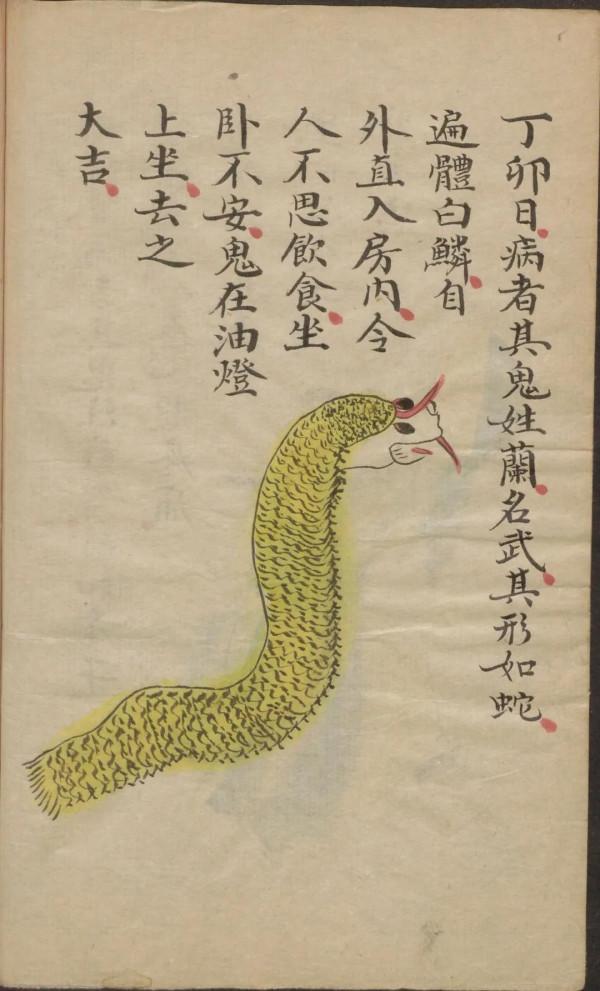 丁卯日病者其鬼姓蘭名武其形如蛇
遍體白鱗自
外直入房內令
人不思飲食坐
卧不安鬼在油燈
上坐去之
大吉